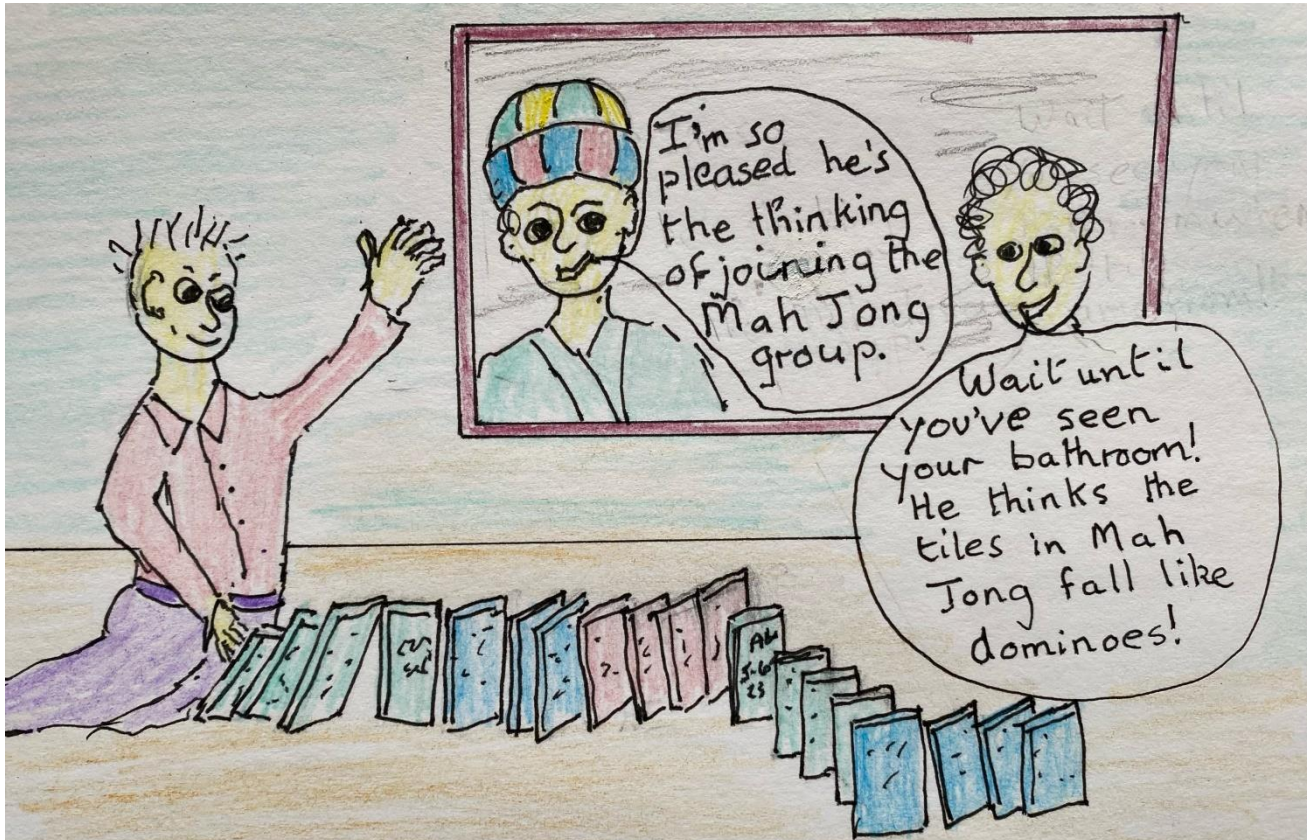 I'm so
pleased he's
the thinking
of joining the
Mah Jong
group.
Wait until
you've seen
your bathroom!
He thinks the
tiles in Mah
Jong fall like
dominoes!
5-6
23